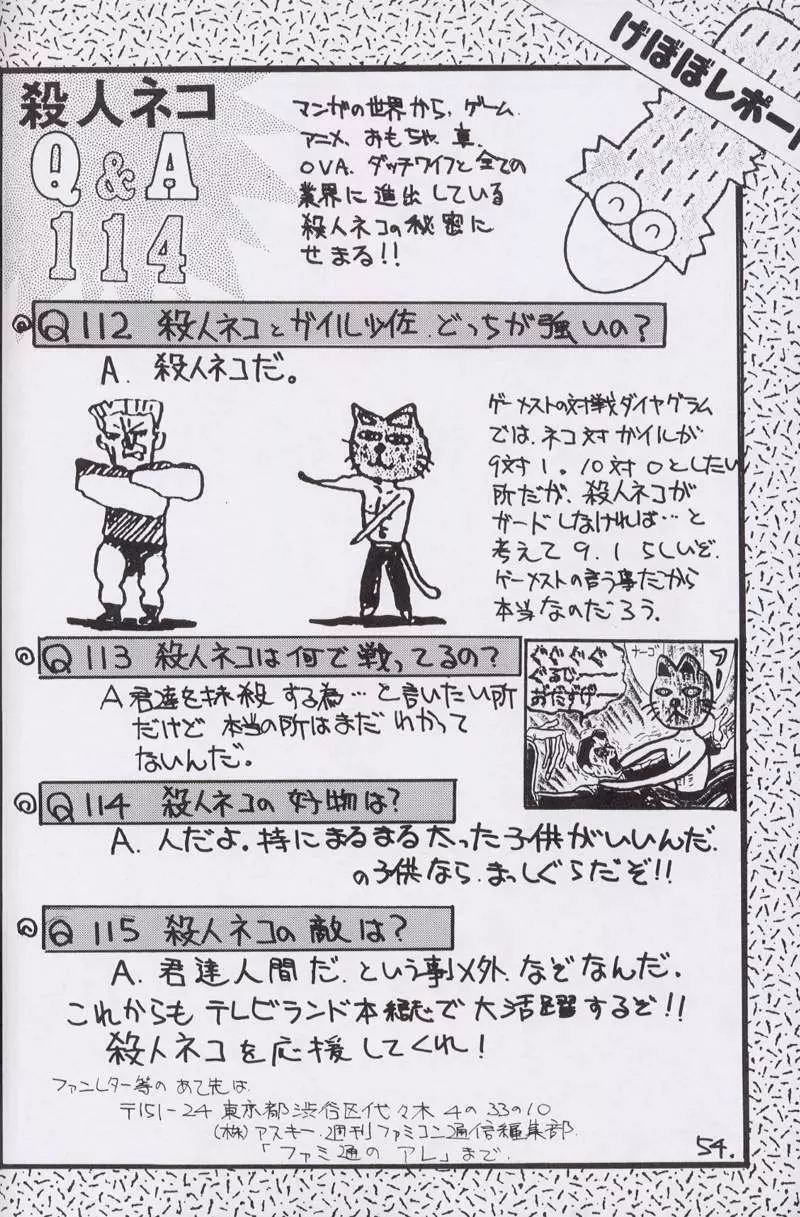 げぼぼレポート
殺人ネコ
Q&A
114
マンガの世界から、ゲーム、
アニメ、おもちゃ、車、
OVA、ダッチワイフと全ての
業界に進出している
殺人ネコの秘密に
せまる!!
Q112 殺人ネコとガイル少佐、どっちが強いの?
A. 殺人ネコだ。
ゲーメストの対戦ダイヤグラム
では、ネコ対ガイルが
9対1。10対0としたい
所だが、殺人ネコが
ガードしなければ…と
考えて9.1らしいぞ。
ゲーメストの言う事だから
本当なのだろう。
Q113 殺人ネコは何で戦ってるの?
A 君達を抹殺する為…と言いたい所
だけど本当の所はまだわかって
ないんだ。
ぐぐぐぐ
ぐるじー
おだずげー
ナーゴ
フー
Q114 殺人ネコの好物は?
A. 人だよ。特にまるまる太った子供がいいんだ。
の子供なら、まっしぐらだぞ!!
Q115 殺人ネコの敵は?
A. 君達人間だ、という事以外、なぞなんだ。
これからもテレビランド本誌で大活躍するぞ!!
殺人ネコを応援してくれ!
ファンレター等のあて先は
〒151-24 東京都渋谷区代々木4の33の10
(株)アスキー、週刊ファミコン通信編集部
「ファミ通のアレ」まで。
54.